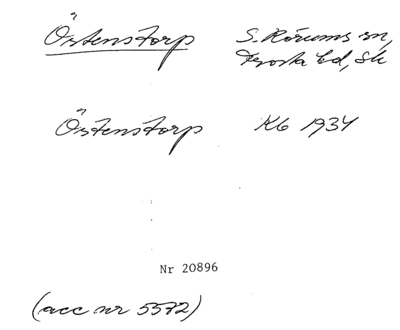 Östenstorp S. Rörums sn,
Frosta hd, Sk
Östenstorp Kb 1934
Nr 20896
(acc nr 5572)